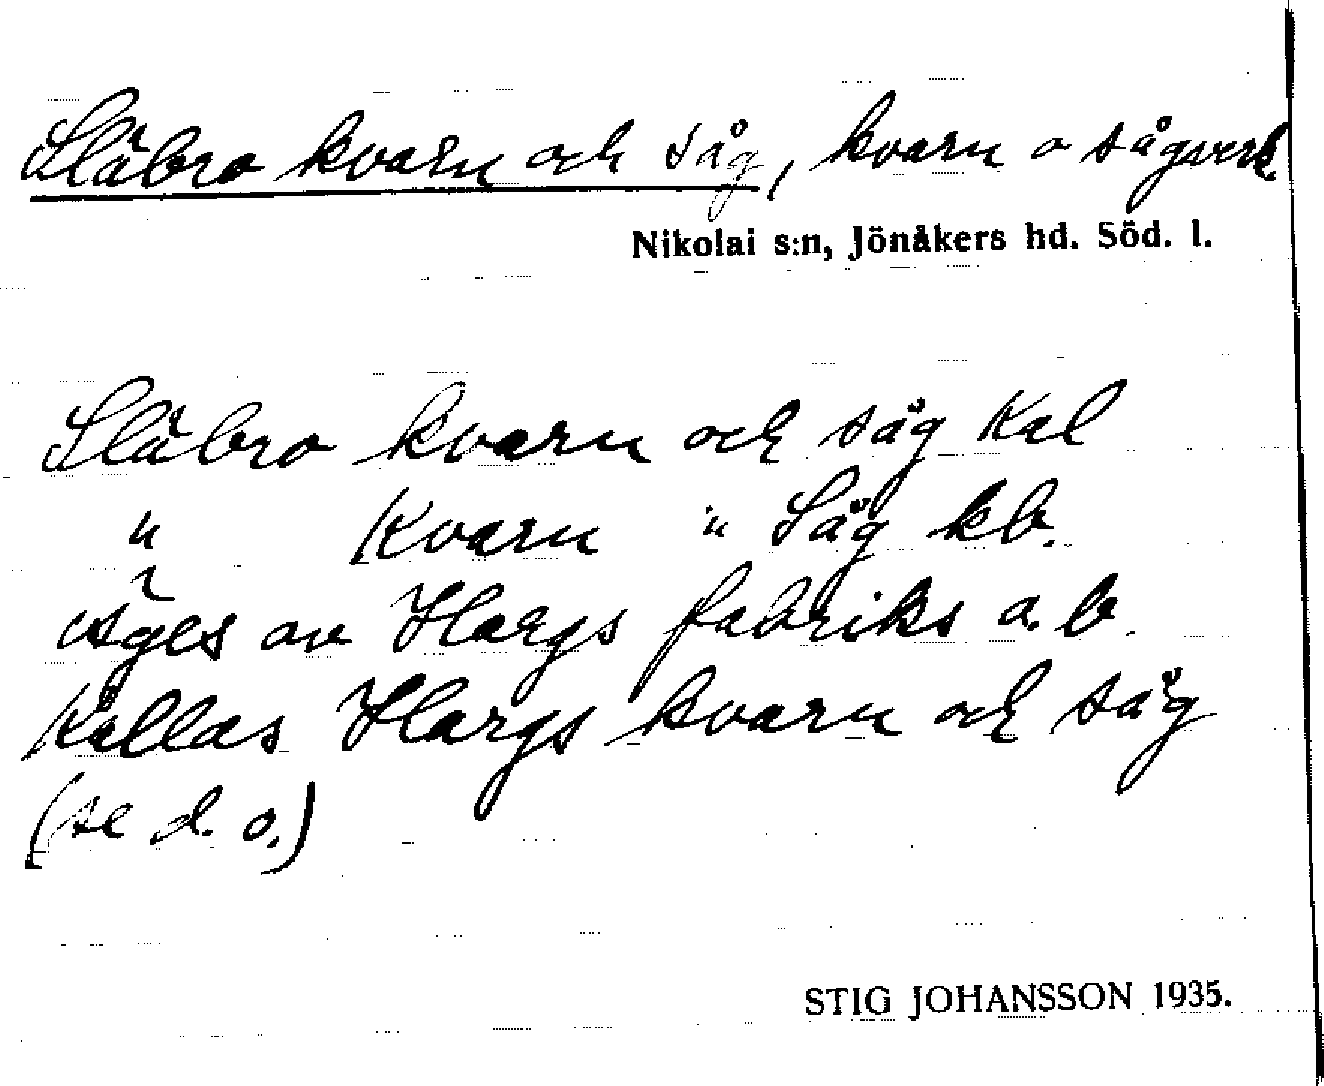 Släbro kvarn och såg, kvarn o sågverk.
Nikolai s:n, Jönåkers hd. Söd. l.
Släbro kvarn och såg Kal
" Kvarn " Såg kb.
äges av Hargs fabriks a.b.
Kallas Hargs kvarn och såg
(se d. o.)
STIG JOHANSSON 1935.